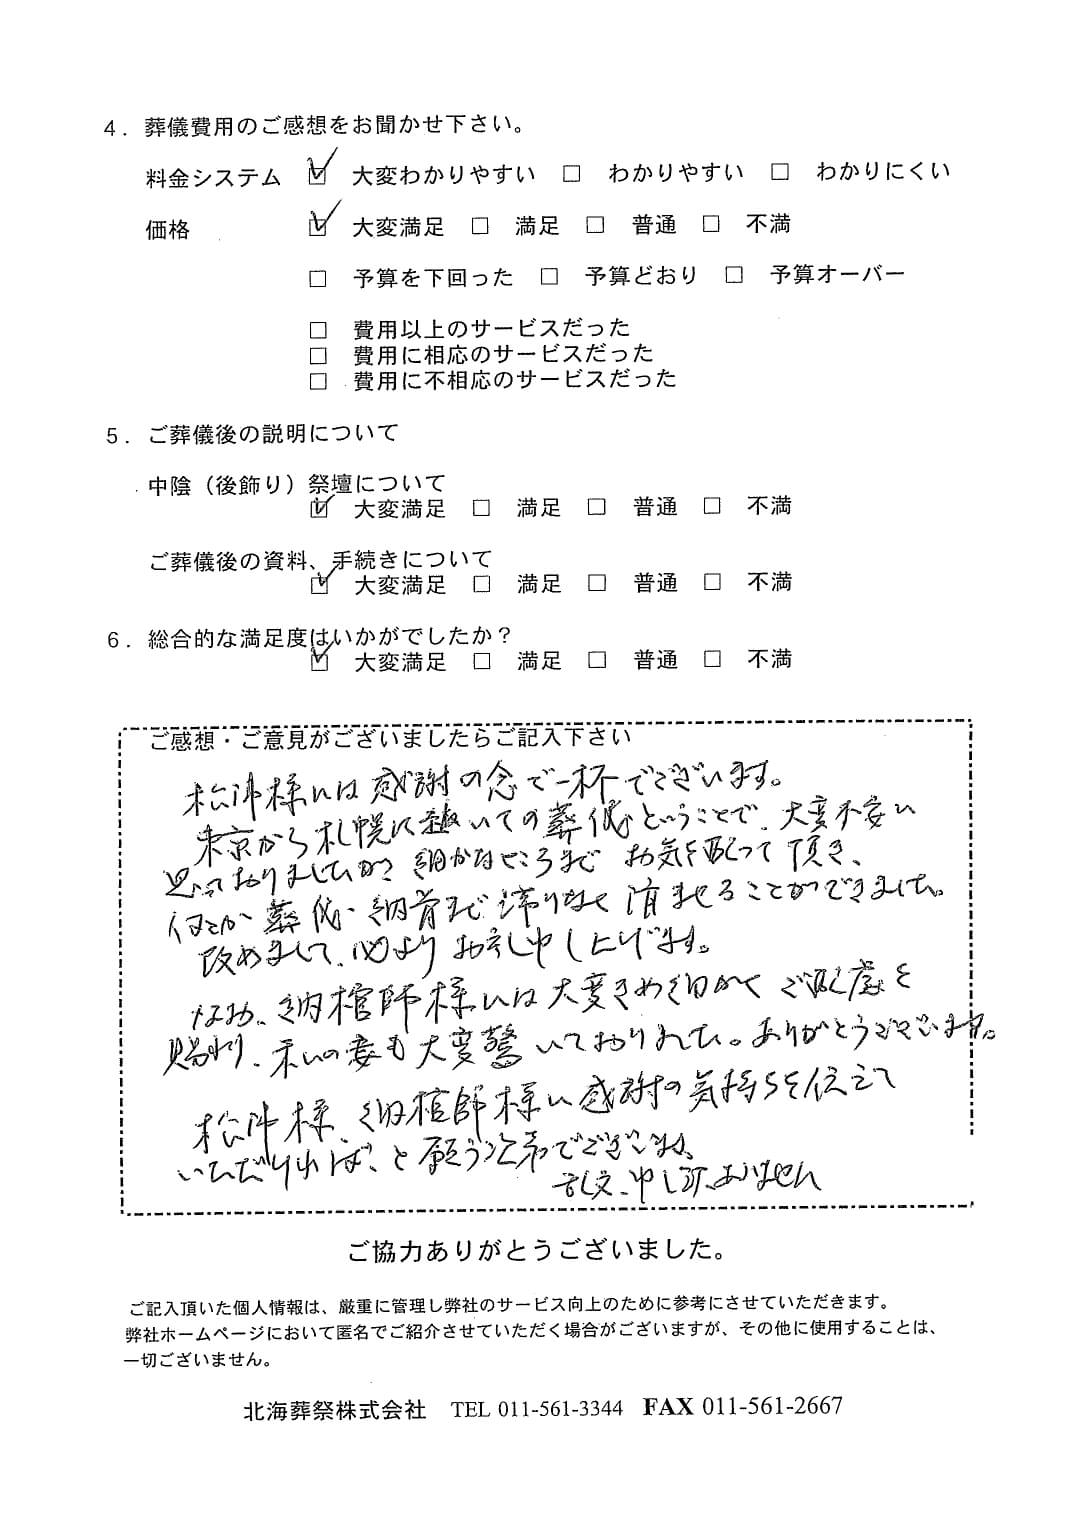 ４．葬儀費用のご感想をお聞かせ下さい。
料金システム ☑ 大変わかりやすい □ わかりやすい □ わかりにくい
価格 ☑ 大変満足 □ 満足 □ 普通 □ 不満
□ 予算を下回った □ 予算どおり □ 予算オーバー
□ 費用以上のサービスだった
□ 費用に相応のサービスだった
□ 費用に不相応のサービスだった
５．ご葬儀後の説明について
中陰（後飾り）祭壇について
☑ 大変満足 □ 満足 □ 普通 □ 不満
ご葬儀後の資料、手続きについて
☑ 大変満足 □ 満足 □ 普通 □ 不満
６．総合的な満足度はいかがでしたか？
☑ 大変満足 □ 満足 □ 普通 □ 不満
ご感想・ご意見がございましたらご記入下さい
様には感謝の念で一杯でございます。
東京から札幌に赴いての葬儀ということで、大変不安に
思っておりましたが、細かなところまで お気を配って頂き、
何とか葬儀・納骨まで滞りなく済ませることができました。
改めまして、心よりお礼申し上げます。
なお、納棺師様には大変きめ細かくご配慮を
賜わり、私の妻も大変驚いておりました。ありがとうございます。
様、納棺師様に感謝の気持ちを伝えて
いただければ、と願う次第でございます。
乱文、申し訳ありません
ご協力ありがとうございました。
ご記入頂いた個人情報は、厳重に管理し弊社のサービス向上のために参考にさせていただきます。
弊社ホームページにおいて匿名でご紹介させていただく場合がございますが、その他に使用することは、
一切ございません。
北海葬祭株式会社 TEL 011-561-3344 FAX 011-561-2667